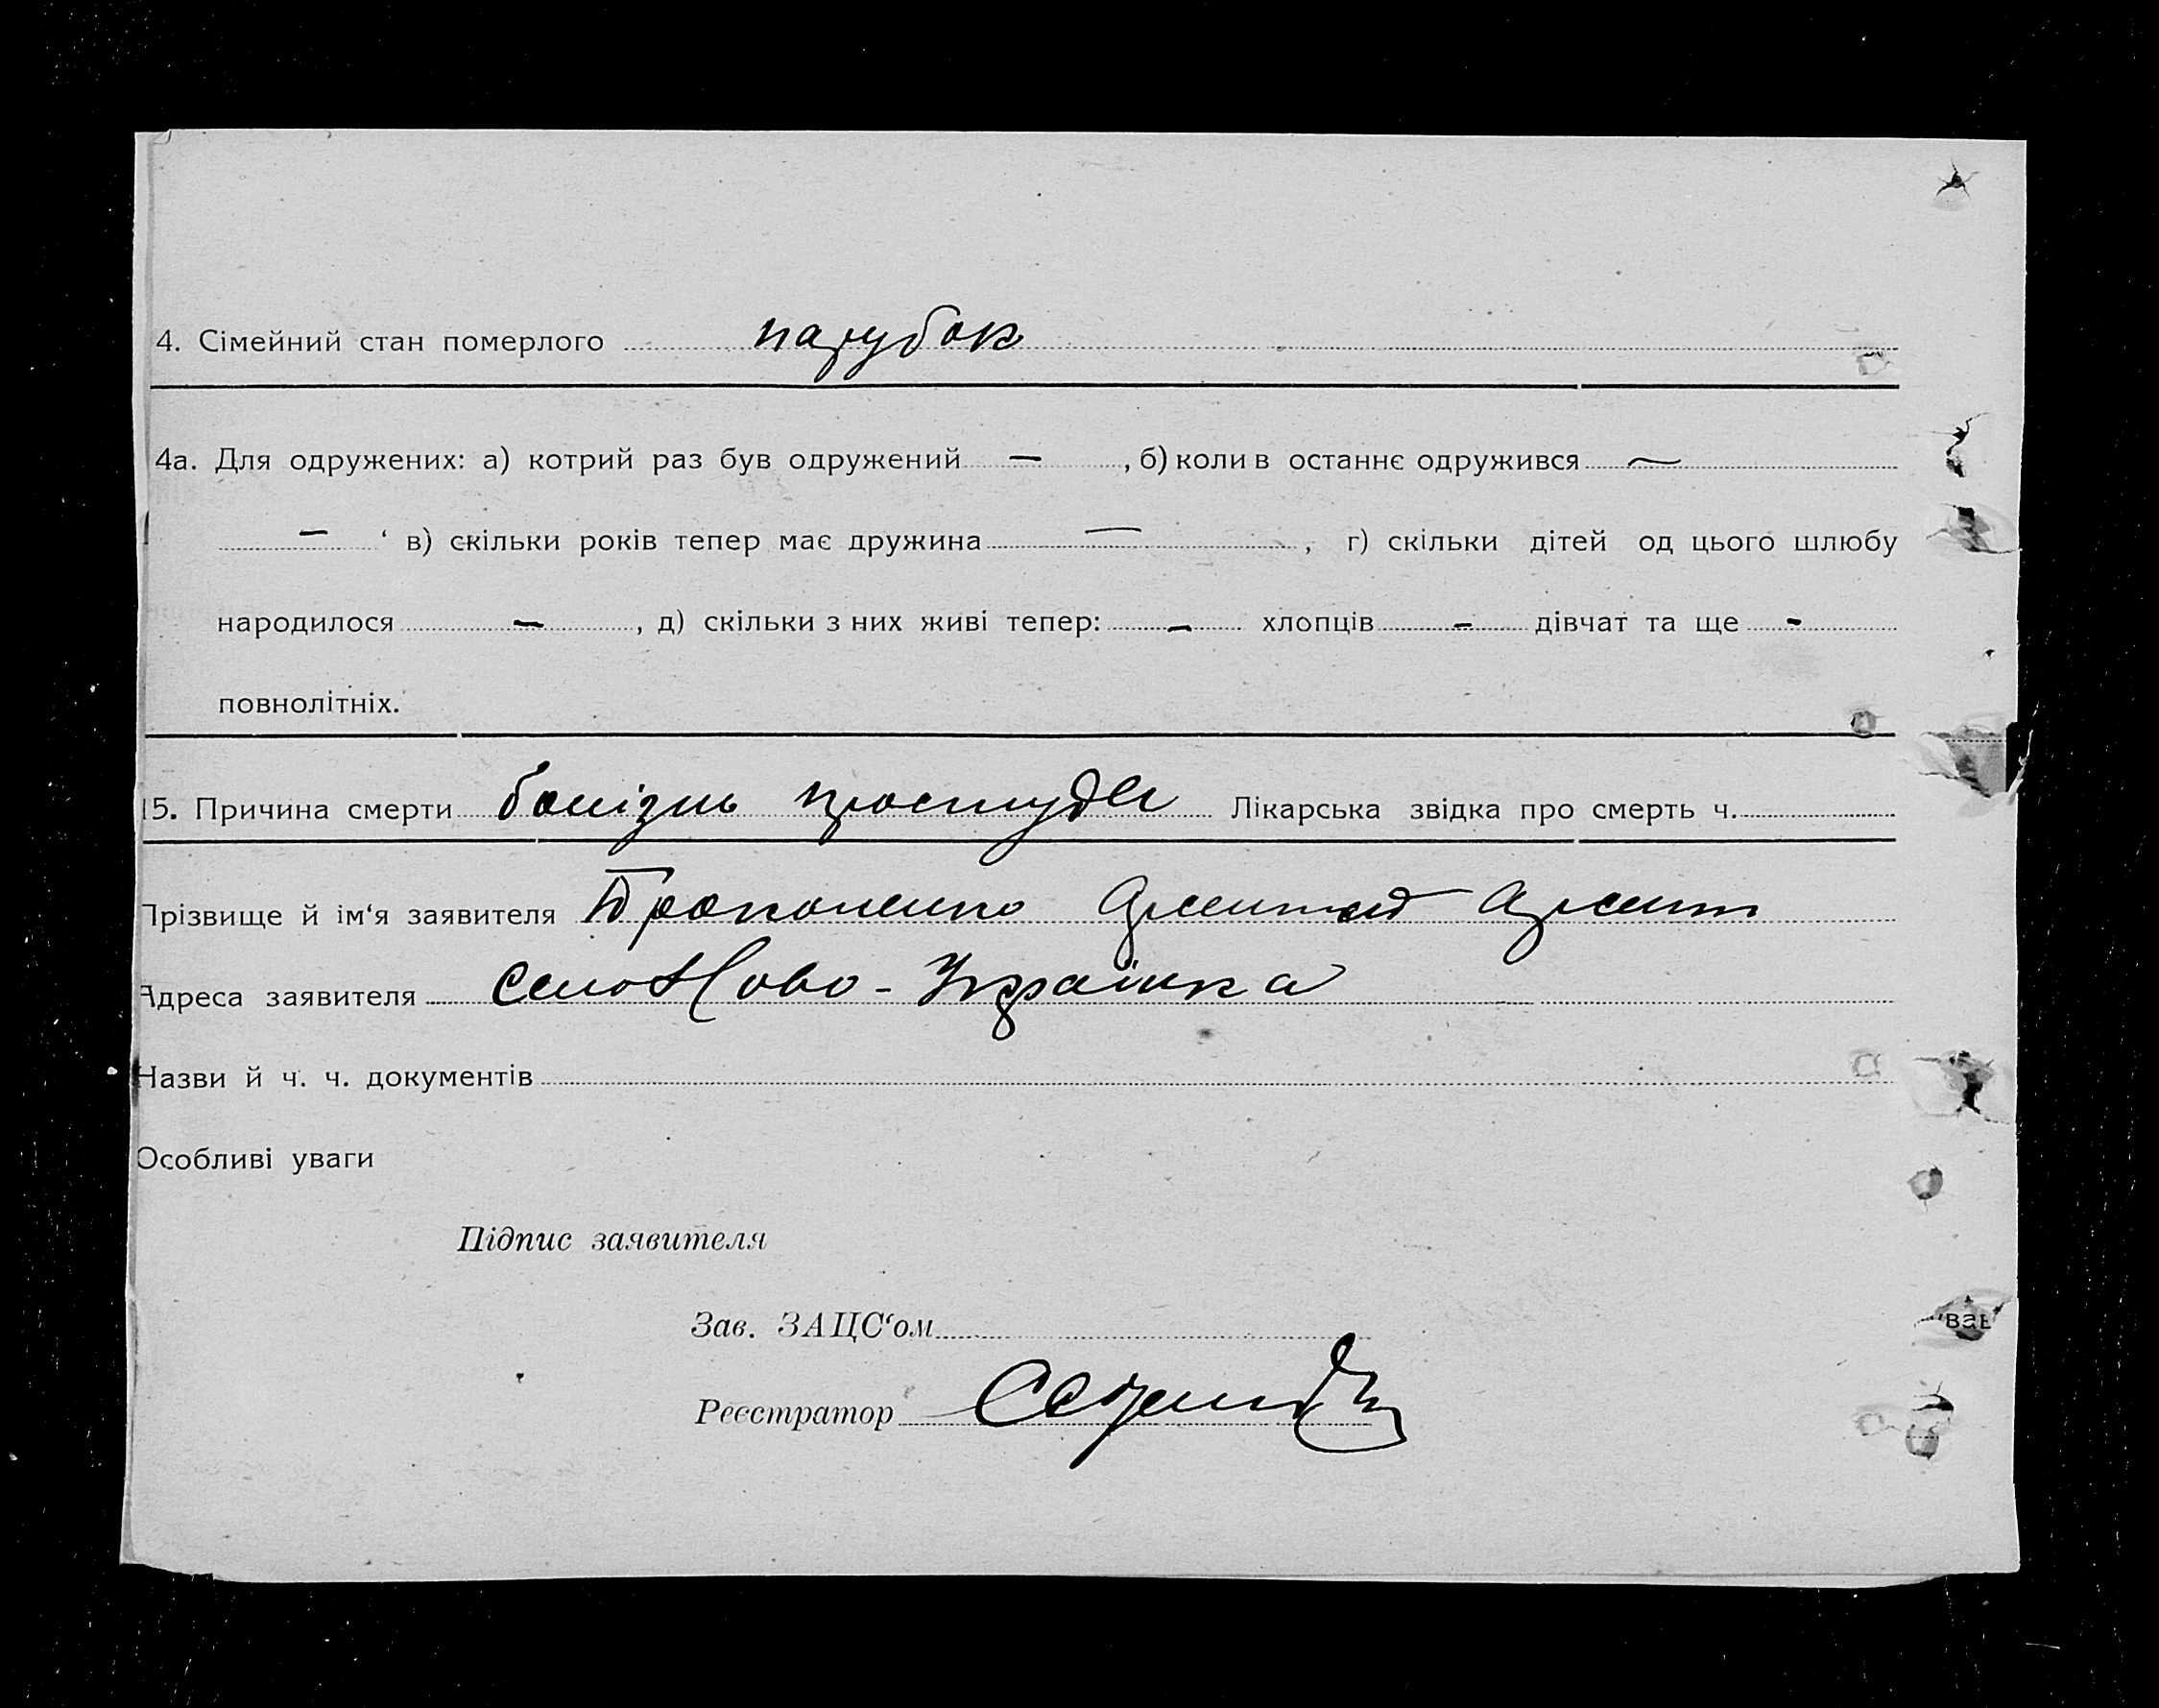 4. Сімейний стан померлого парубок
4а. Для одружених: а) котрий раз був одружений — , б) коли в останнє одружився —
— ‘ в) скільки років тепер має дружина — , г) скільки дітей од цього шлюбу
народилося — , д) скільки з них живі тепер: — хлопців — дівчат та ще -
повнолітніх.
15. Причина смерти болізнь простуда Лікарська звідка про смерть ч.
Прізвище й ім‘я заявителя Прокопенко
Адреса заявителя село Ново-Українка
Назви й ч. ч. документів
Особливі уваги
Підпис заявителя
Зав. ЗАЦС‘ом
Реєстратор